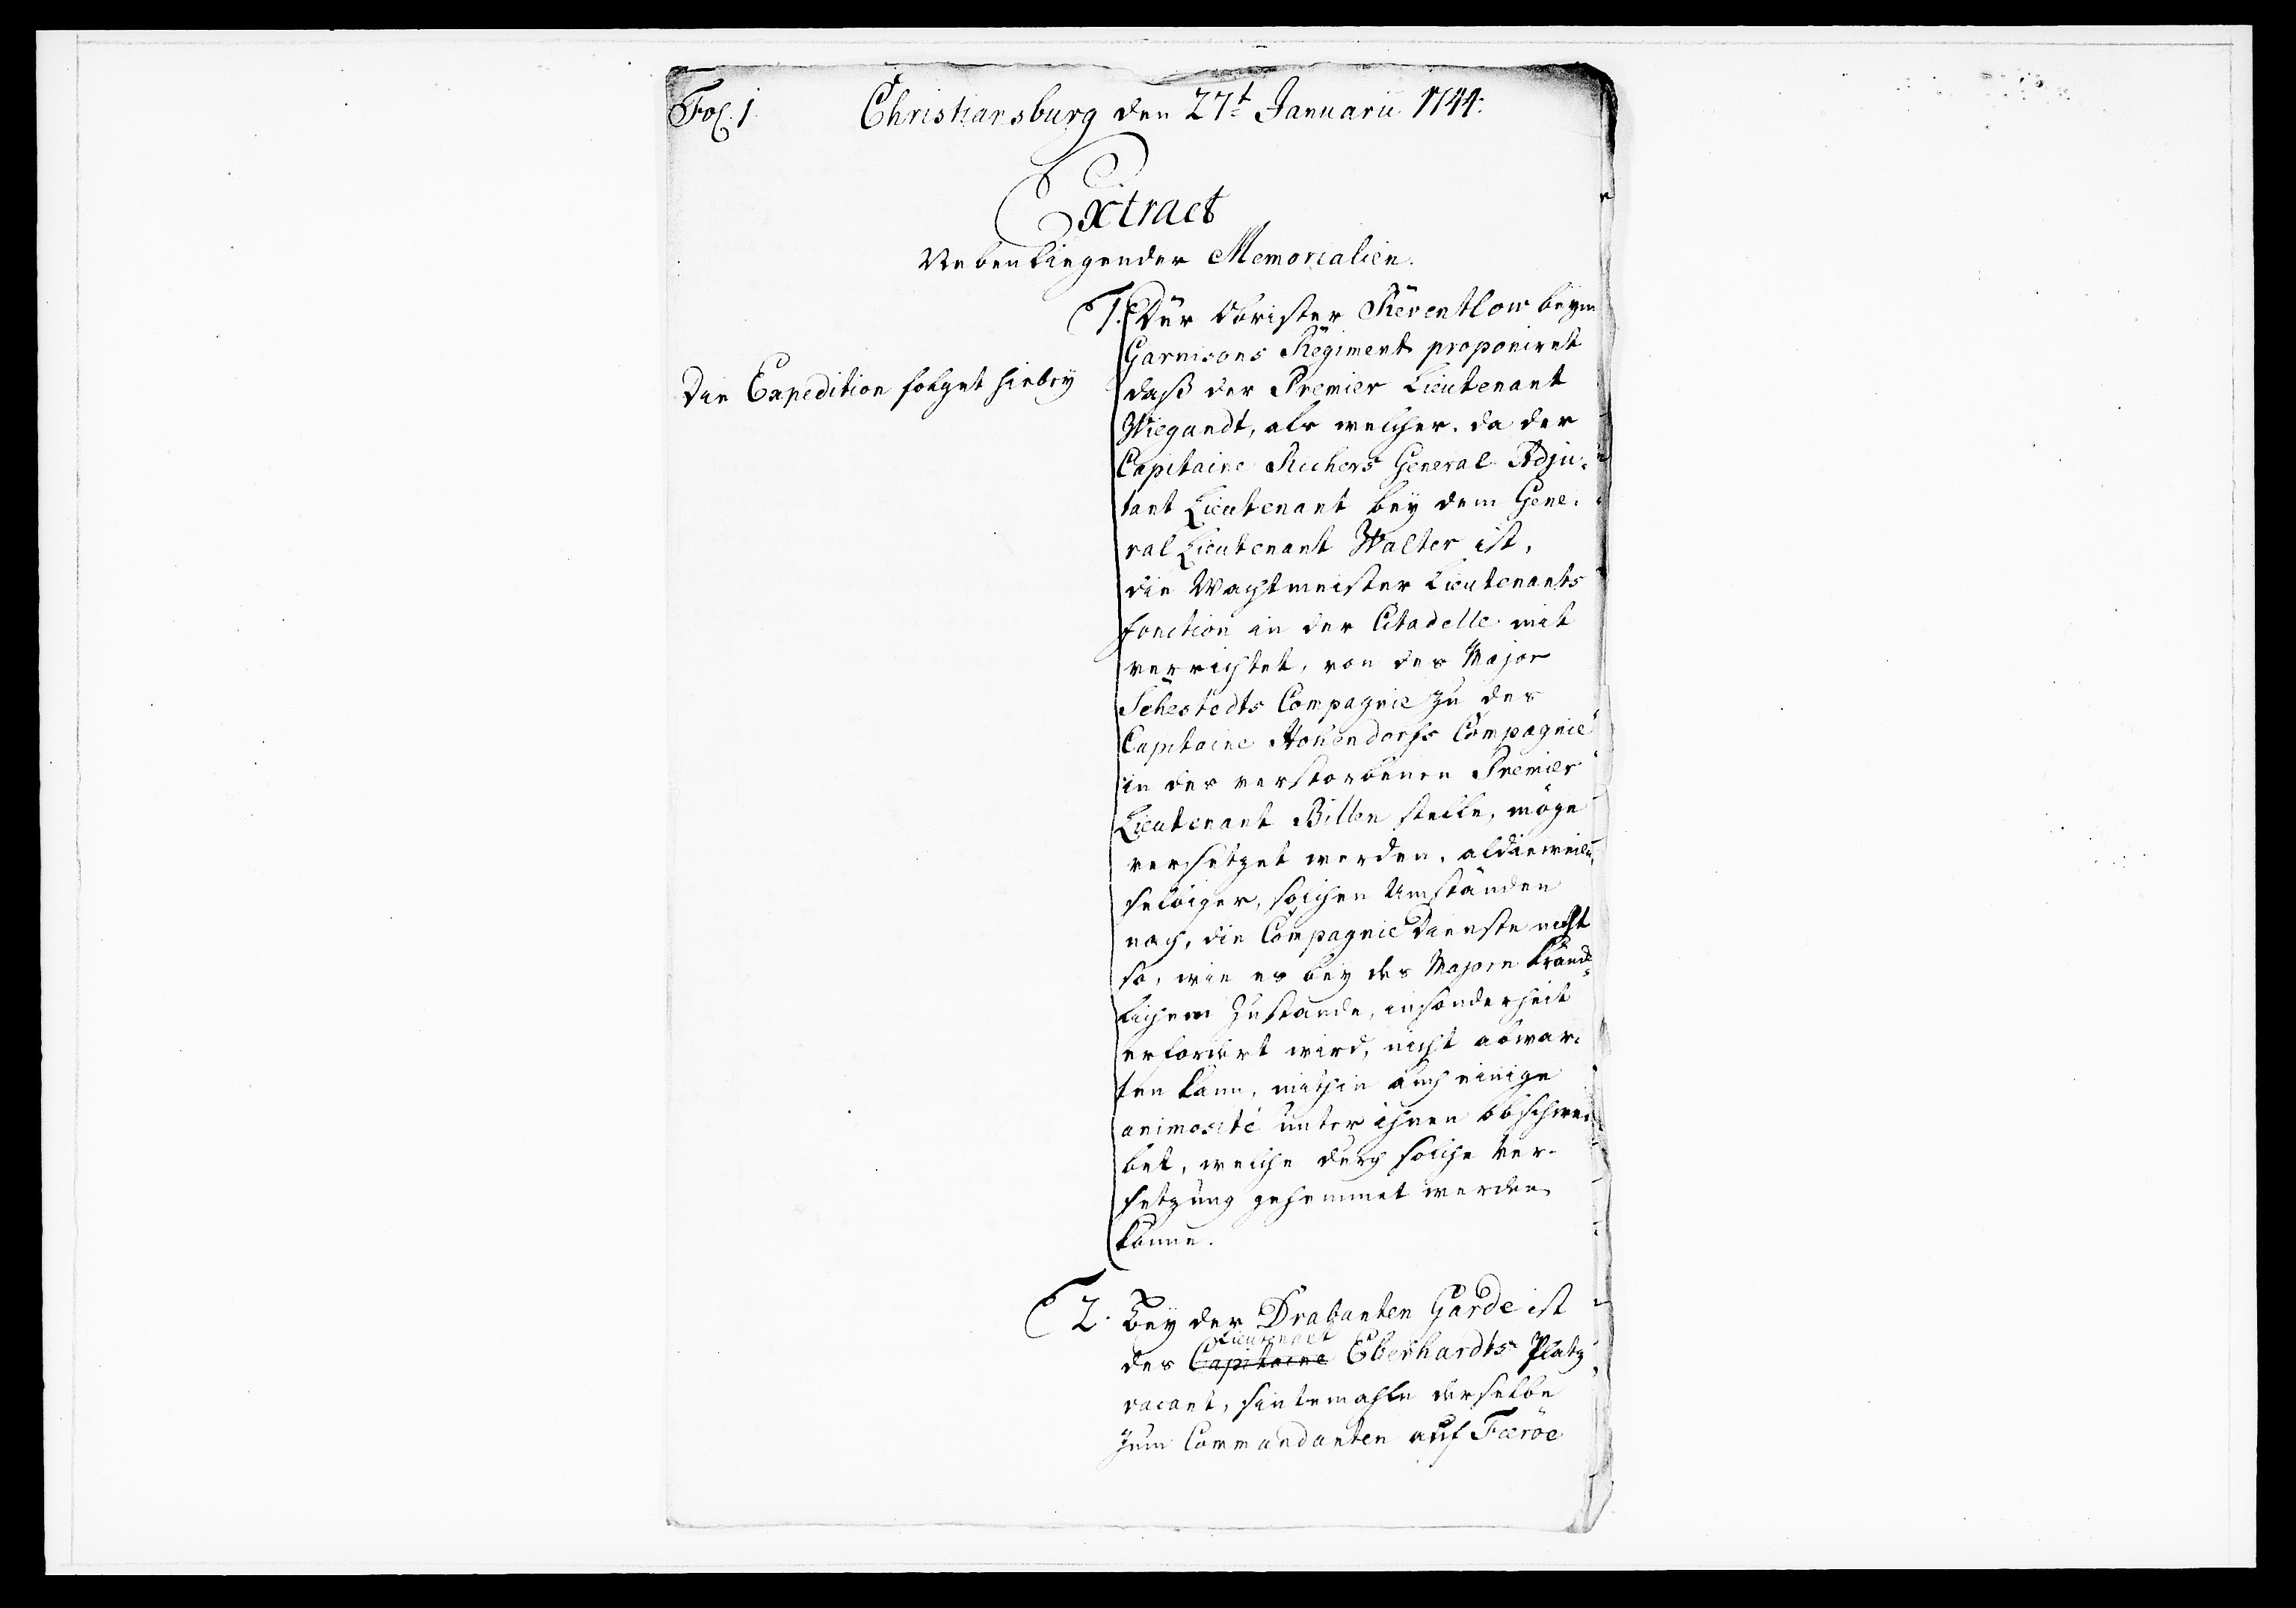 Fol. 1.
Christiansburg den 27t Januarii 1744.
Extract
Nebenliegender Memorialien.
1. Der Obrister Reventlow beym
Garnisons Regiment proponiret
Die Expedition folget hiebey
daß der Premier Lieutenant
Wiegandt, als welcher, da der
Capitaine Richers General Adju-
tant Lieutenant bey dem Gene-
ral Lieutenant Walter ist,
die Wachtmeister Lieutenants
fonction in der Citadelle mit
verrichtet, von des Major
Sehestedts Compagnie zu des
Capitaine Hohendorfs Compagnie
in des verstorbenen Premier
Lieutenant Billen stelle, möge
versetzet werden, aldieweilen
selbiger, solchen Umständen
nach, die Compagnie Dienste nicht
so, wie es bey des Majorn kränck-
lichem Zustande, insonderheit
erfordert wird, nicht abwar-
ten kann, mithin auch einige
animosité unter ihnen obschwe-
bet, welche durch solche Ver-
setzung gehemmet werden
könne.
2. Bey der Drabanten Garde ist
Lieutenant
des Capitaine Eberhardts Platz
vacant, sintemahln derselbe
zum Commandanten auf Færöe